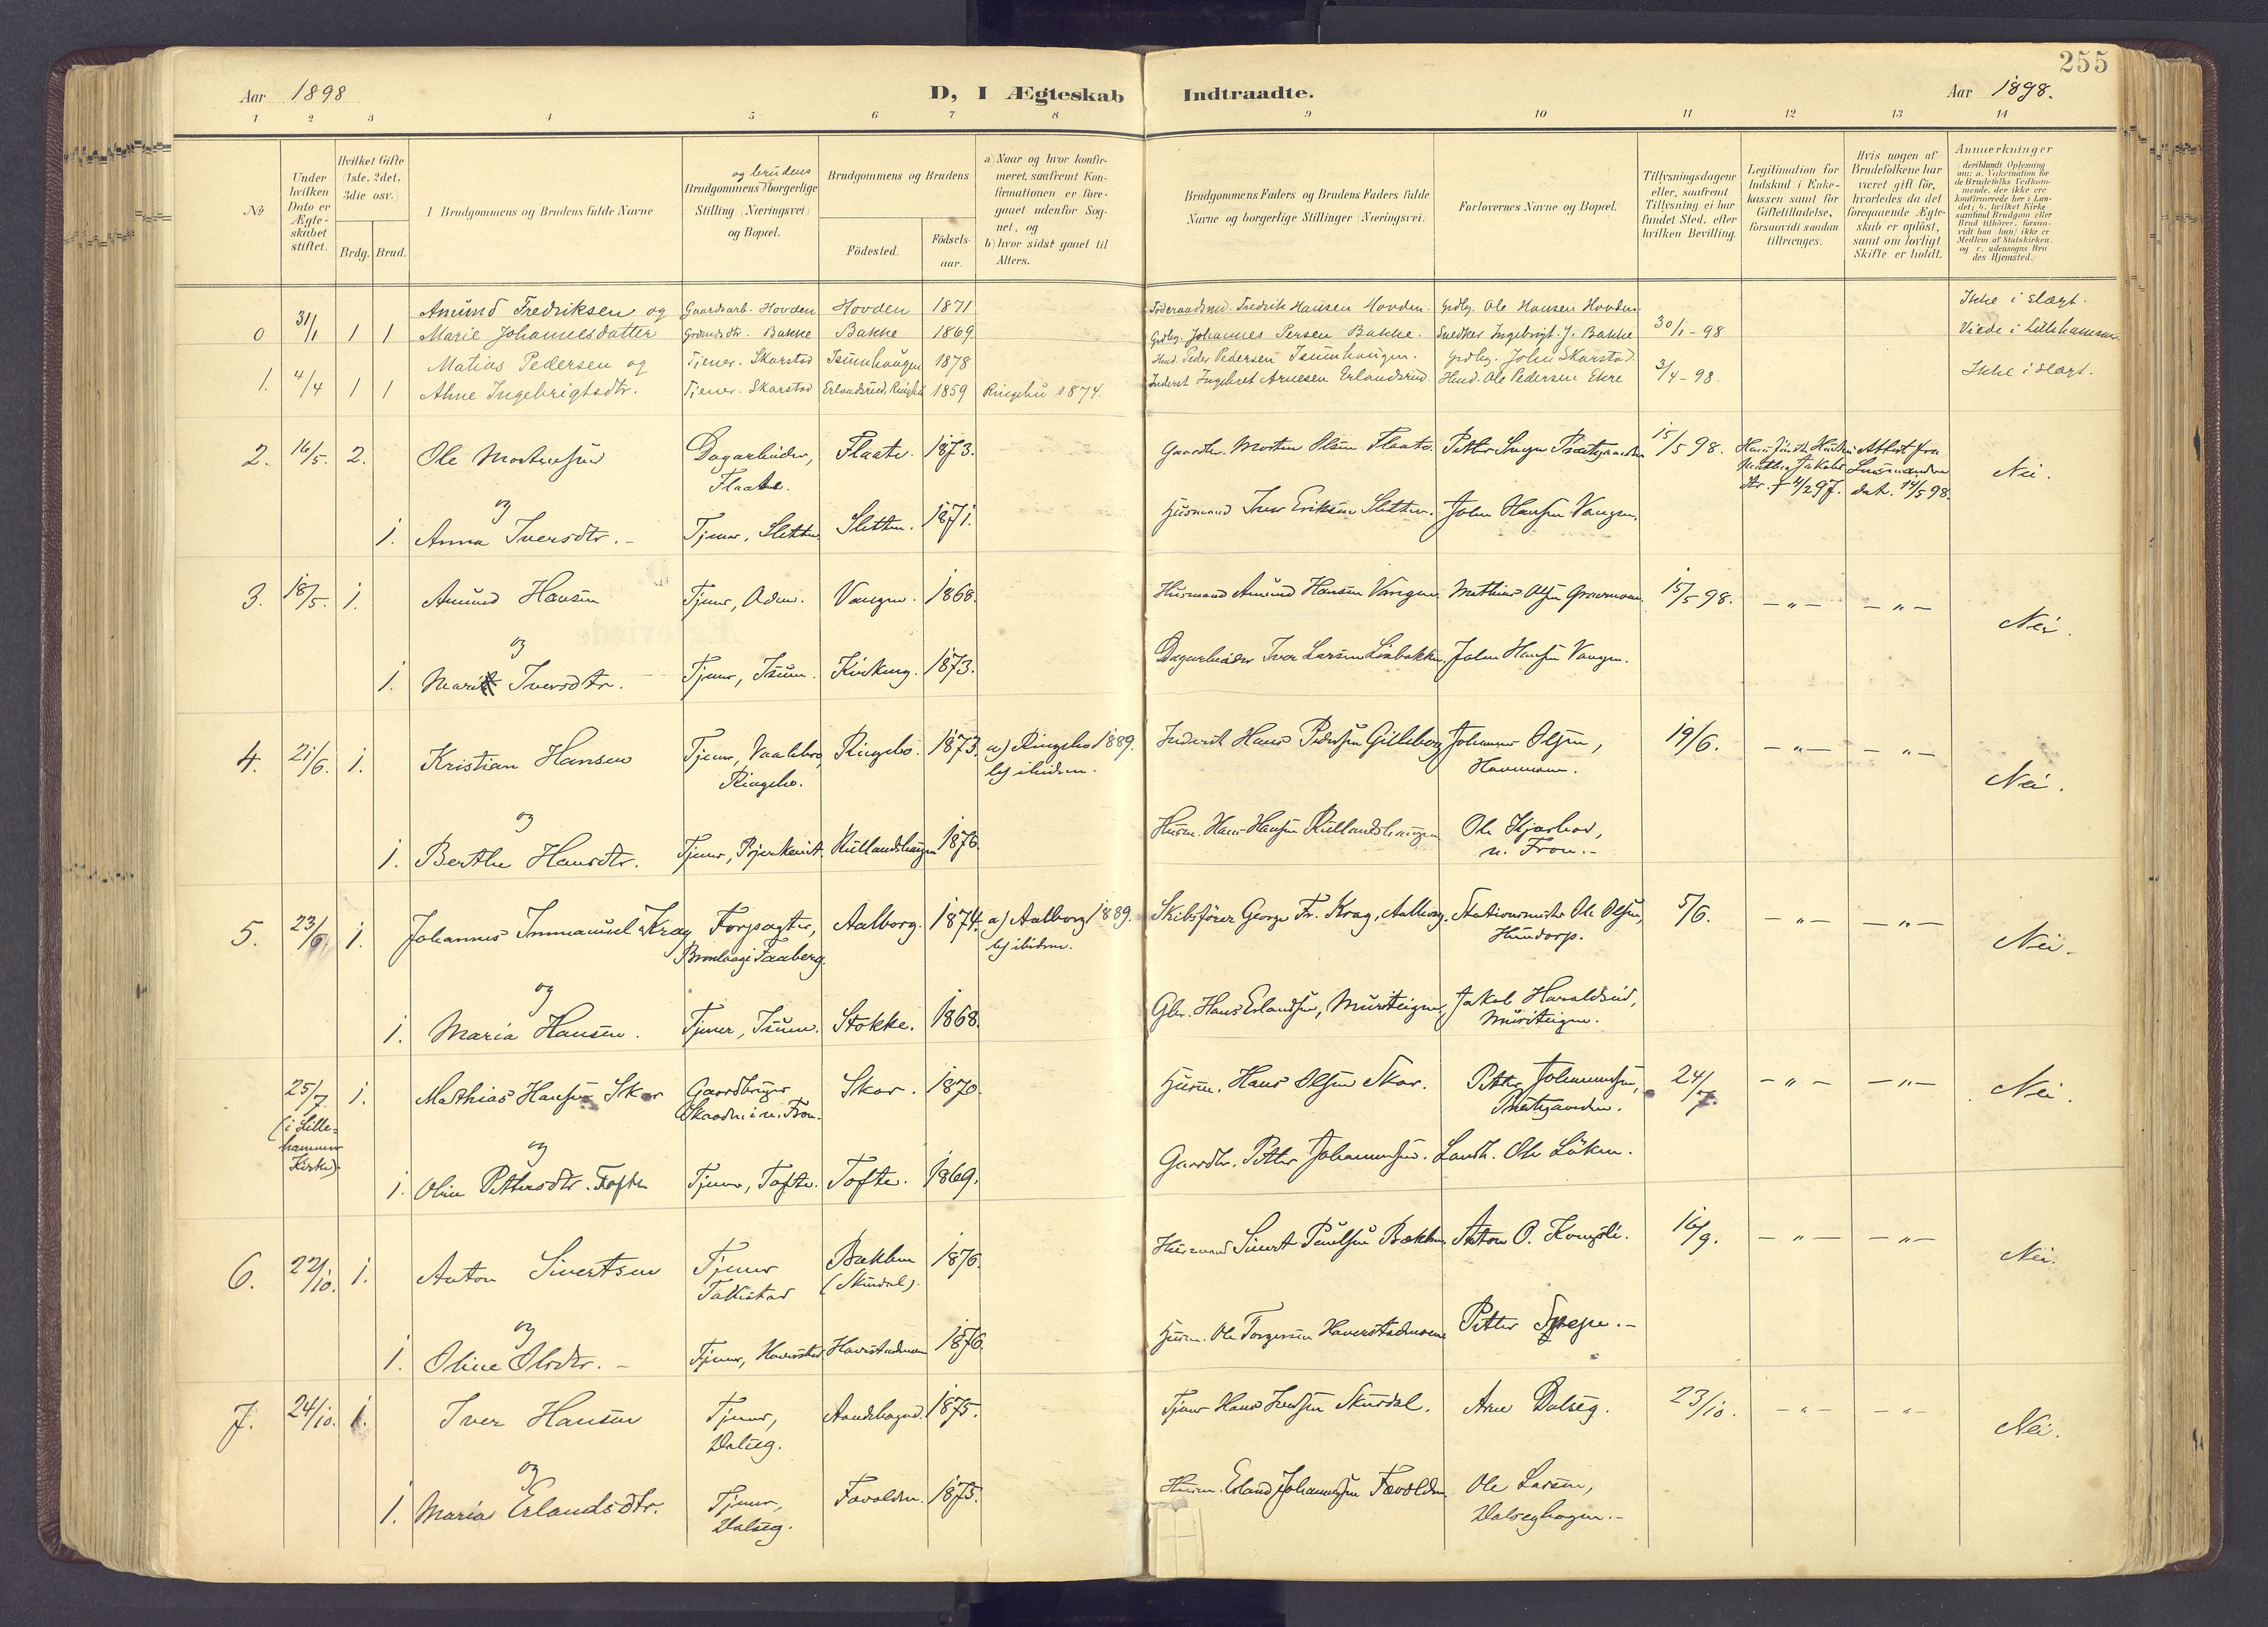 255
Aar 1898
D, I Ægteskab Indtraadte.
Aar 1898.
1 2 3 4 5 6 7 8 9 10 11 12 13 14
№
Under hvilken Dato er Ægteskabet stiftet.
Hvilket Gifte (1ste, 2det, 3die osv.)
Brdg. Brud.
1 Brudgommens og Brudens fulde Navne
og brudens
Brudgommens borgerlige Stilling (Næringsvei) og Bopæl.
Brudgommens og Brudens
Födested.
Födselsaar.
a) Naar og hvor konfirmeret, saafremt Konfirmationen er foregaaet udenfor Sognet, og
b) hvor sidst gaaet til Alters.
Brudgommens Faders og Brudens Faders fulde Navne og borgerlige Stillinger (Næringsvei).
Forlovernes Navne og Bopæl.
Tillysningsdagene eller, saafremt Tillysning ei har fundet Sted, efter hvilken Bevilling.
Legitimation for Indskud i Enkekassen samt for Giftetilladelse, forsaavidt saadan tiltrænges.
Hvis nogen af Brudefolkene har været gift för, hvorledes da det foregaaende Ægteskab er oplöst, samt om lovligt Skifte er holdt.
Anmærkninger
(deriblandt Oplysning om: a. Vaccination for de Brudefolks Vedkommende, der ikke ere konfirmerede her i Landet; b. hvilket Kirkesamfund Brudgom eller Brud tilhörer, forsaavidt han (hun) ikke er Medlem af Statskirken, og c. udensogns Brudes Hjemsted.)
0 31/1 1 1 Amund Fredriksen og Gaardsarb. Hovden Hovden 1871 Föderaadsmd. Fredrik Hansen Hovden. Grdbg. Ole Hansen Hovden Ikke i slægt.
Marie Johannesdatter Grdmdsdtr. Bakke Bakke 1869. Grdbg. Johannes Persen Bakke. Snedker Ingebrigt J. Bakke 30/1 - 98 Viede i Lillehammer
Matias Pedersen og Tjener. Skarstad Isumhaugen 1878 Husmd. Peder Pedersen Isumhaugen. Grdbg. John Skarstad.
1. 4/4 1 1 Ahne Ingebrigtsdtr. Tjener. Skarstad Erlandsrud, Ringebu 1859 Ringebu 1874. Inderst Ingebret Arnesen Erlandsrud. Husmd. Ole Pedersen Ekre 3/4 - 98. Ikke i slægt.
2. 16/5. 2. Ole Mortensen Dagarbeider, Flaate. Flaate. 1873. Gaardbr. Morten Olsen Flaate. Petter Præstgaarden 15/5 98. Jakobsdtr. † 4/2 97. Attest fra Lensmanden dat. 14/5 98. Nei.
og
1. Anna Iversdtr. - Tjener, Sletten Sletten. 1871. Husmand Iver Eriksen Sletten. John Hansen Vangen.
3. 18/5. 1. Amund Hansen Tjener, Aden. Vangen. 1868. Husmand Amund Hansen Vangen Mathias Olsen 15/5 98. - " - - " - Nei.
og
1. Marit Iversdtr. Tjener, Isum. Kirkeng. 1873. Dagarbeider Iver Larsen Linbakken. John Hansen Vangen.
4. 21/6. 1. Kristian Hansen Tjener, Vaalebro, Ringebo. Ringebo. 1873. a) Ringebo 1889. b) ibidem. Inderst Hans Pedersen Gilleborg Johannes Olsen, 19/6. - " - - " - Nei.
og
1. Berthe Hansdtr. Tjener, Bjerkeveit. Rullandshaugen 1876. Husm. Hans Hansen Rullandshaugen Ole n. Fron. -
5. 23/6. 1. Johannes Immanuel Krag Forpagter, Taaberg. Aalborg. 1874. a) Aalborg 1889. b) ibidem. Skibsförer George Fr. Krag, Aalborg. Stationsmester Ole Olsen, Hundorp. 5/6. - " - - " - Nei.
og
1. Maria Hansen. Tjener, Isum. Stokke. 1868. Gbr. Hans Erlandsen, Muriteigen, Jakob Haraldsrud, Muriteigen.
25/7 (i Lillehammer Kirke). 1. Mathias Hansen Skar Gaardbruger n. Fron. Skar. 1870. Husm. Hans Olsen Skar. Petter Johannessen, Præstgaarden. 24/7. - " - - " - Nei.
og
1. Oline Pettersdtr. Tofte Tjener, Tofte. Tofte. 1869. Gaardbr. Petter Johannessen. Landh. Ole Löken.
6. 22/10. 1. Anton Sivertsen Tjener Talleistad Bækken (Skurdal). 1876. Husmand Sivert Paulsen Bækken Anton O. Kongsli. 16/9. - " - - " - Nei.
og
1. Oline Olsdtr. - Tjener, Haverstad. Haverstadmoen 1876. Husm. Ole Torgersen Haverstadmoen Petter -
7. 24/10. 1. Iver Hansen Tjener, Dalseg. 1875. Tjener Hans Iversen Skurdal. Arne Dalseg. 23/10. - " - - " - Nei.
og
1. Maria Erlandsdtr. Tjener, Dalseg. Fævolden. 1875. Husm. Erland Johannessen Fævolden. Ole Larsen, Dalseghagen. -